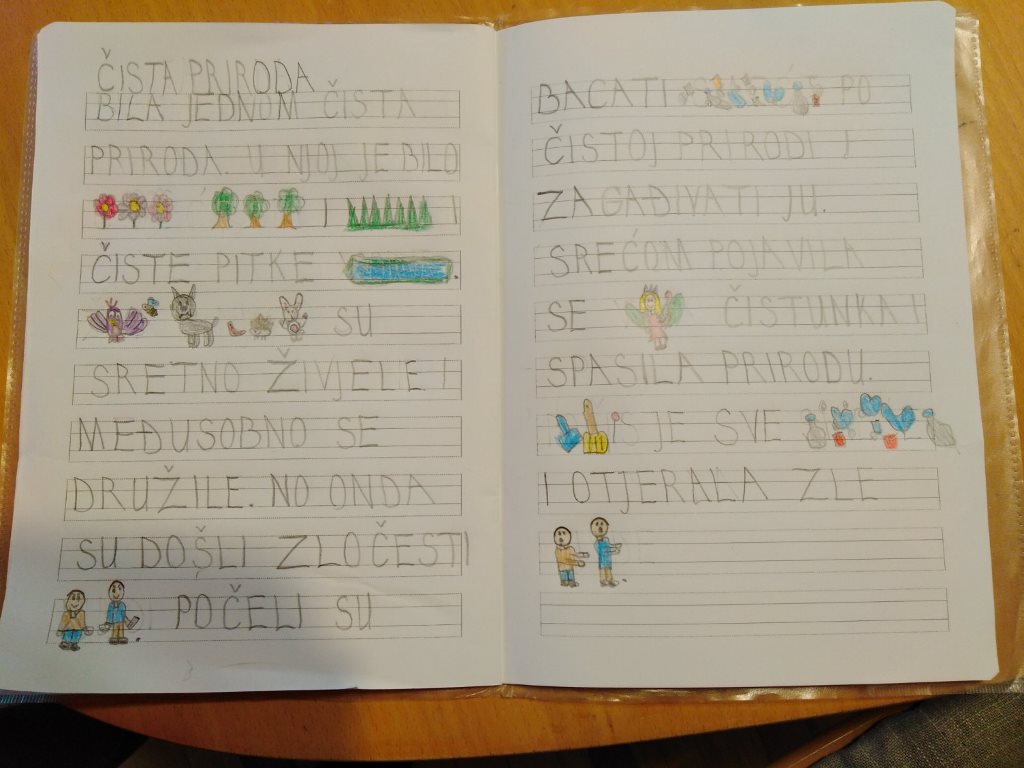 ČISTA PRIRODA
BILA JEDNOM ČISTA
PRIRODA. U NJOJ JE BILO
I I
ČISTE PITKE .
SU
SRETNO ŽIVJELE I
MEĐUSOBNO SE
DRUŽILE. NO ONDA
SU DOŠLI ZLOČESTI
. POČELI SU
BACATI PO
ČISTOJ PRIRODI I
ZAGAĐIVATI JU.
SREĆOM POJAVILA
SE ČISTUNKA I
SPASILA PRIRODU.
JE SVE
I OTJERALA ZLE
.